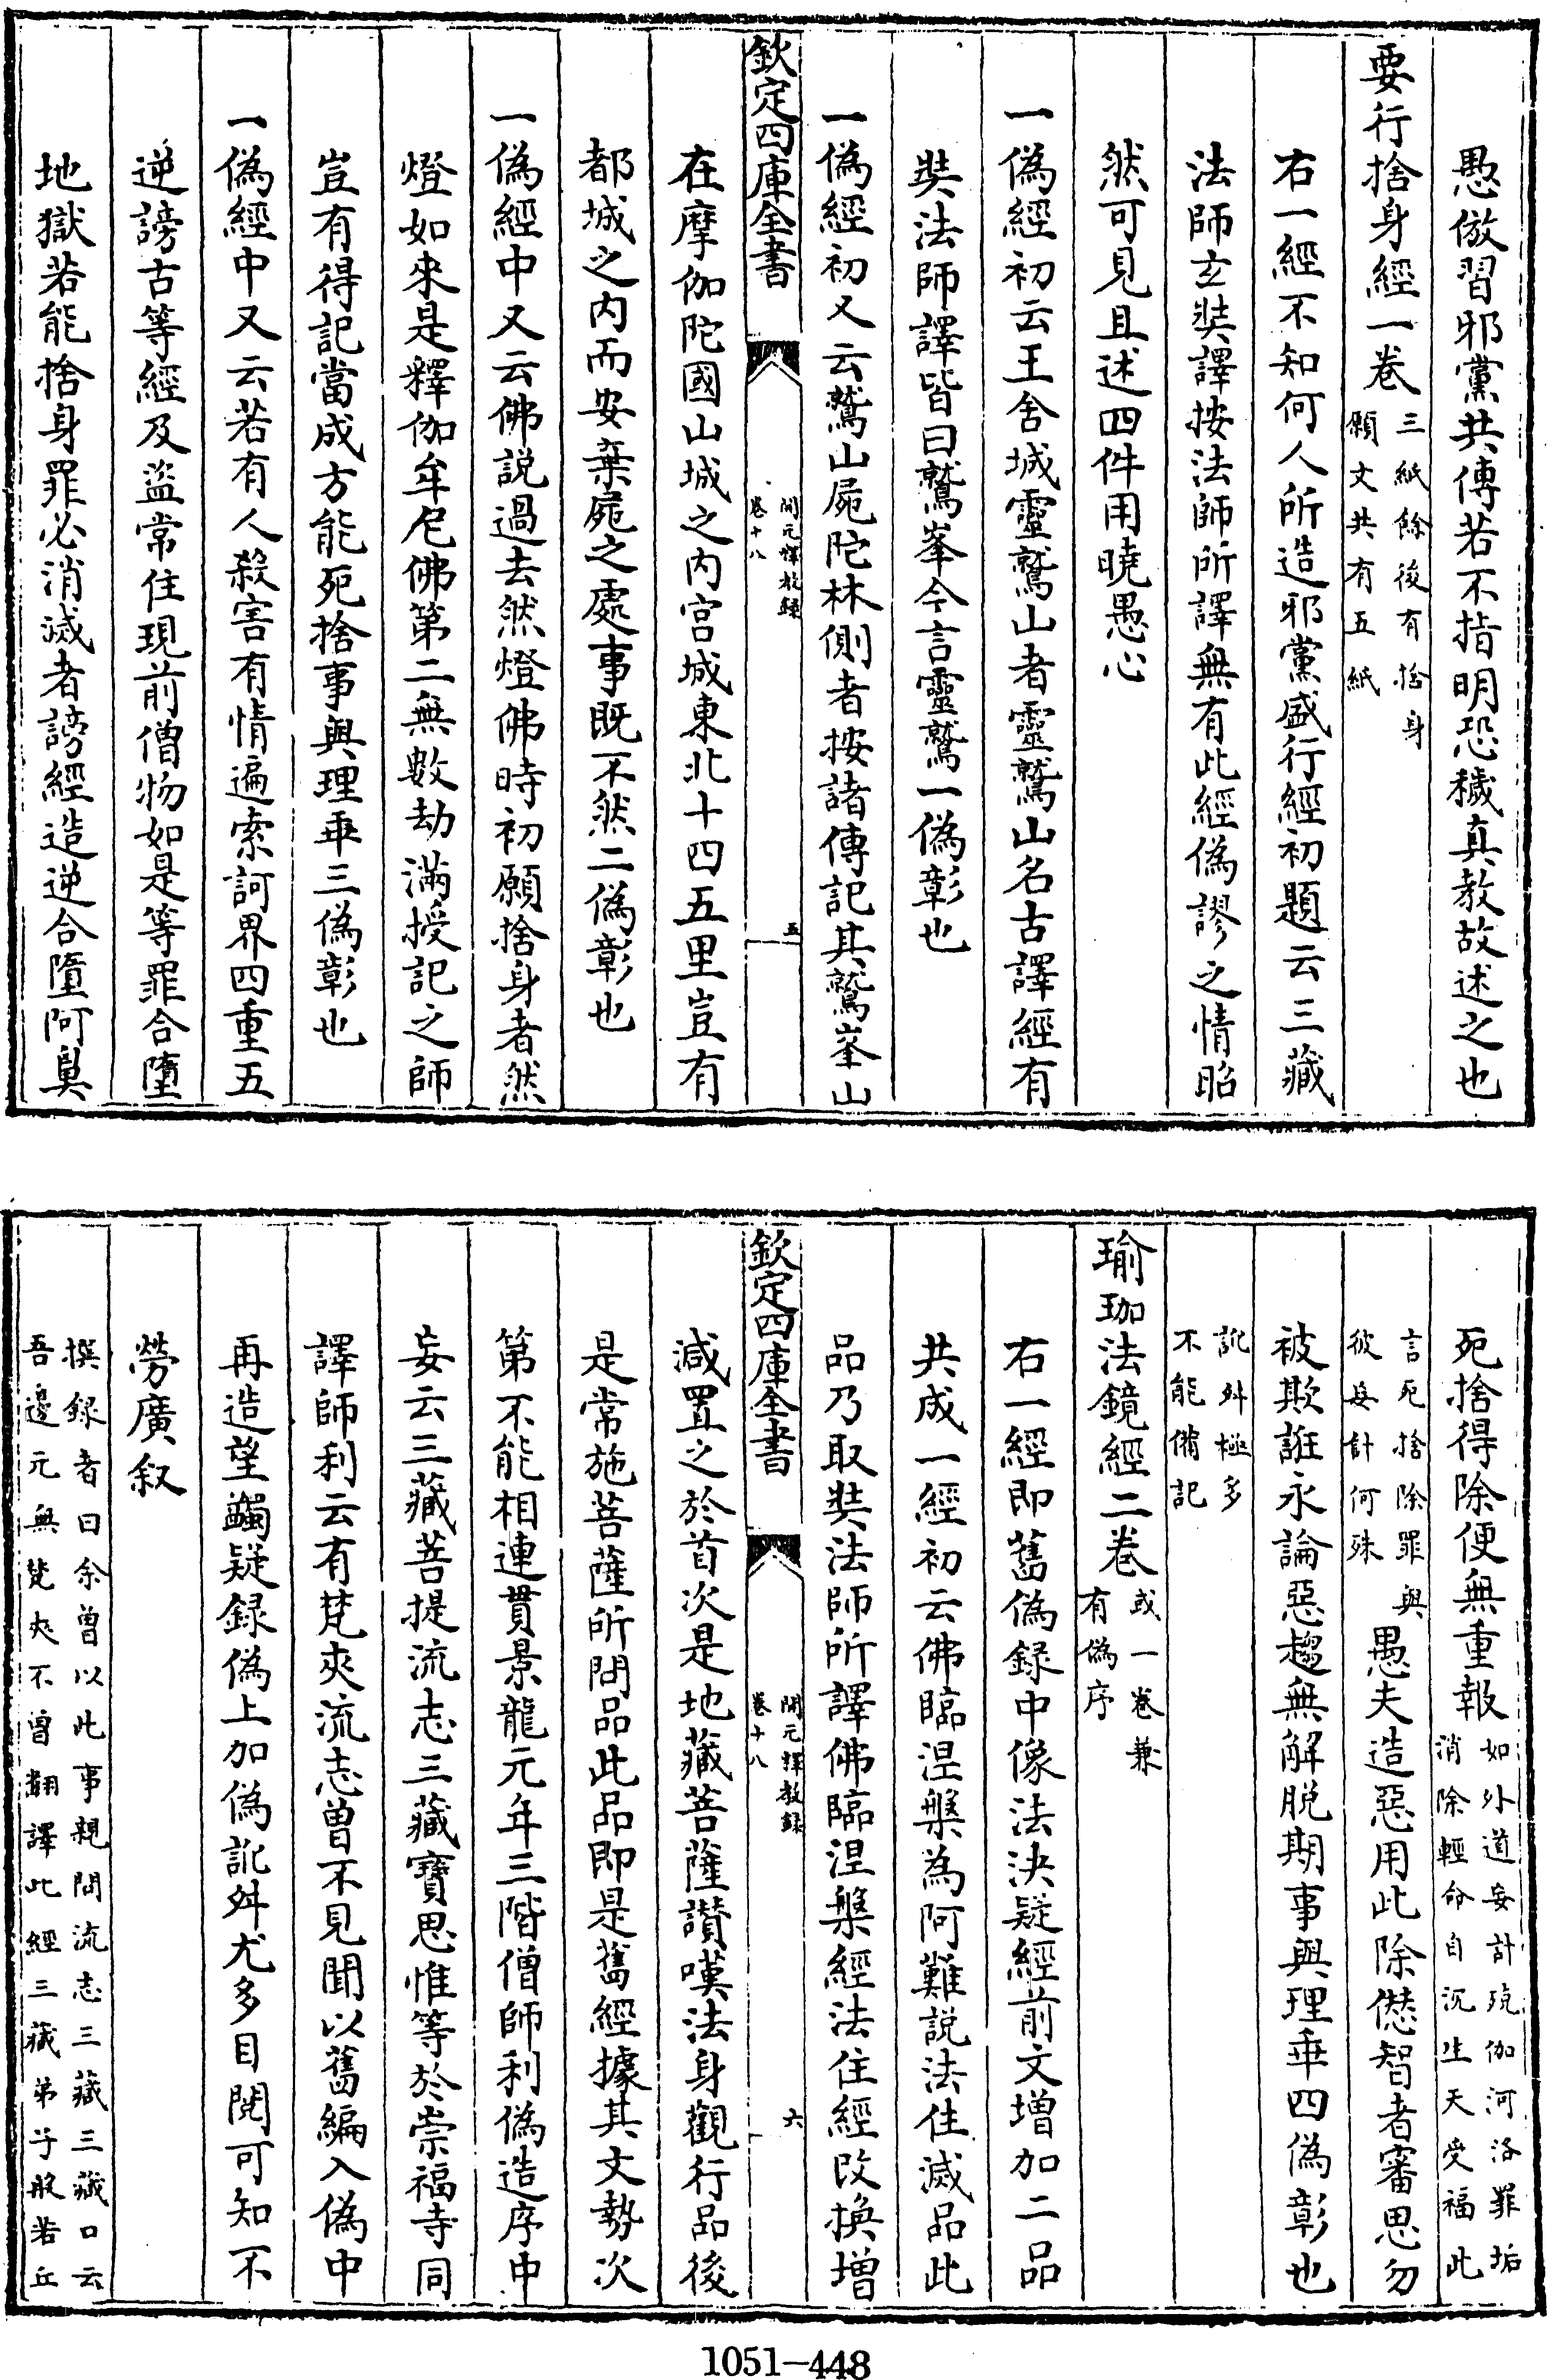 愚倣習邪黨共傳若不指明恐穢真教故述之也
要行捨身經一卷三紙餘後有捨身
願文共有五紙
右一經不知何人所造邪黨盛行經初題云三藏
法師玄奘譯按法師所譯無有此經偽謬之情昭
然可見且述四件用曉愚心
一偽經初云王舍城靈鷲山者靈鷲山名古譯經有
奘法師譯皆曰鷲峯今言靈鷲一偽彰也
一偽經初又云鷲山屍陀林側者按諸傳記其鷲峯山
欽定四庫全書
開元釋教録
卷十八
五
在摩伽陀國山城之内宫城東北十四五里豈有
都城之内而安棄屍之處事既不然二偽彰也
一偽經中又云佛說過去然燈佛時初願捨身者然
燈如來是釋伽牟尼佛第二無數劫滿授記之師
豈有得記當成方能死捨事與理乖三偽彰也
一偽經中又云若有人殺害有情遍索訶界四重五
逆謗古等經及盜常住現前僧物如是等罪合墮
地獄若能捨身罪必消滅者謗經造逆合墮阿臭
死捨得除便無重報如外道妄計殑伽河洛罪垢
消除輕命自沉生天受福此
言死捨除罪與
彼妄計何殊愚夫造惡用此除愆智者審思勿
被欺誑永論惡趣無解脱期事與理乖四偽彰也
訛舛極多
不能備記
瑜珈法鏡經二卷或一卷兼
有偽序
右一經即舊偽録中像法決疑經前文增加二品
共成一經初云佛臨涅槃為阿難説法住滅品此
品乃取奘法師所譯佛臨涅槃經法住經改換增
欽定四庫全書
開元釋教録
卷十八
六
減置之於首次是地藏菩薩讃嘆法身觀行品後
是常施菩薩所問品此品即是舊經據其文勢次
第不能相連貫景龍元年三階僧師利偽造序中
妄云三藏菩提流志三藏寶思惟等於崇福寺同
譯師利云有梵夾流志曽不見聞以舊編入偽中
再造望蠲疑録偽上加偽訛舛尤多目閱可知不
勞廣叙
撰録者曰余曽以此事親問流志三藏三藏口云
吾邊元無梵夾不曽翻譯此經三藏弟子般若丘
1051-448